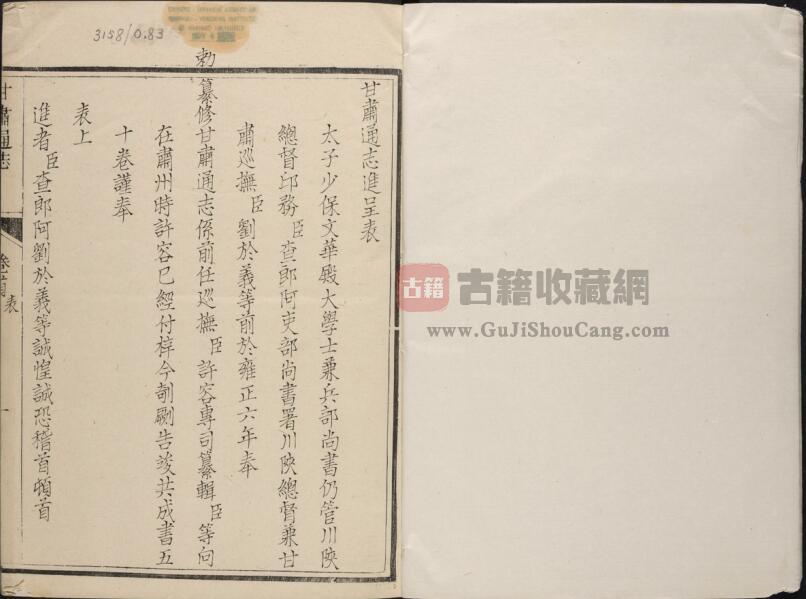 3158/0.83
甘肅通志進呈表
太子少保文華殿大學士兼兵部尚書仍管川陜
總督印務臣查郎阿吏部尚書署川陜總督兼甘
肅巡撫臣劉於義等前於雍正六年奉
勅纂修甘肅通志係前任巡撫臣許容專司纂輯臣等向
在肅州時許容已經付梓今剞劂告竣共成書五
十卷謹奉
表上
進者臣查郎阿劉於義等誠惶誠恐稽首頓首
甘肅通志
表
一
古籍
古籍收藏網
www.GuJiShouCang.com